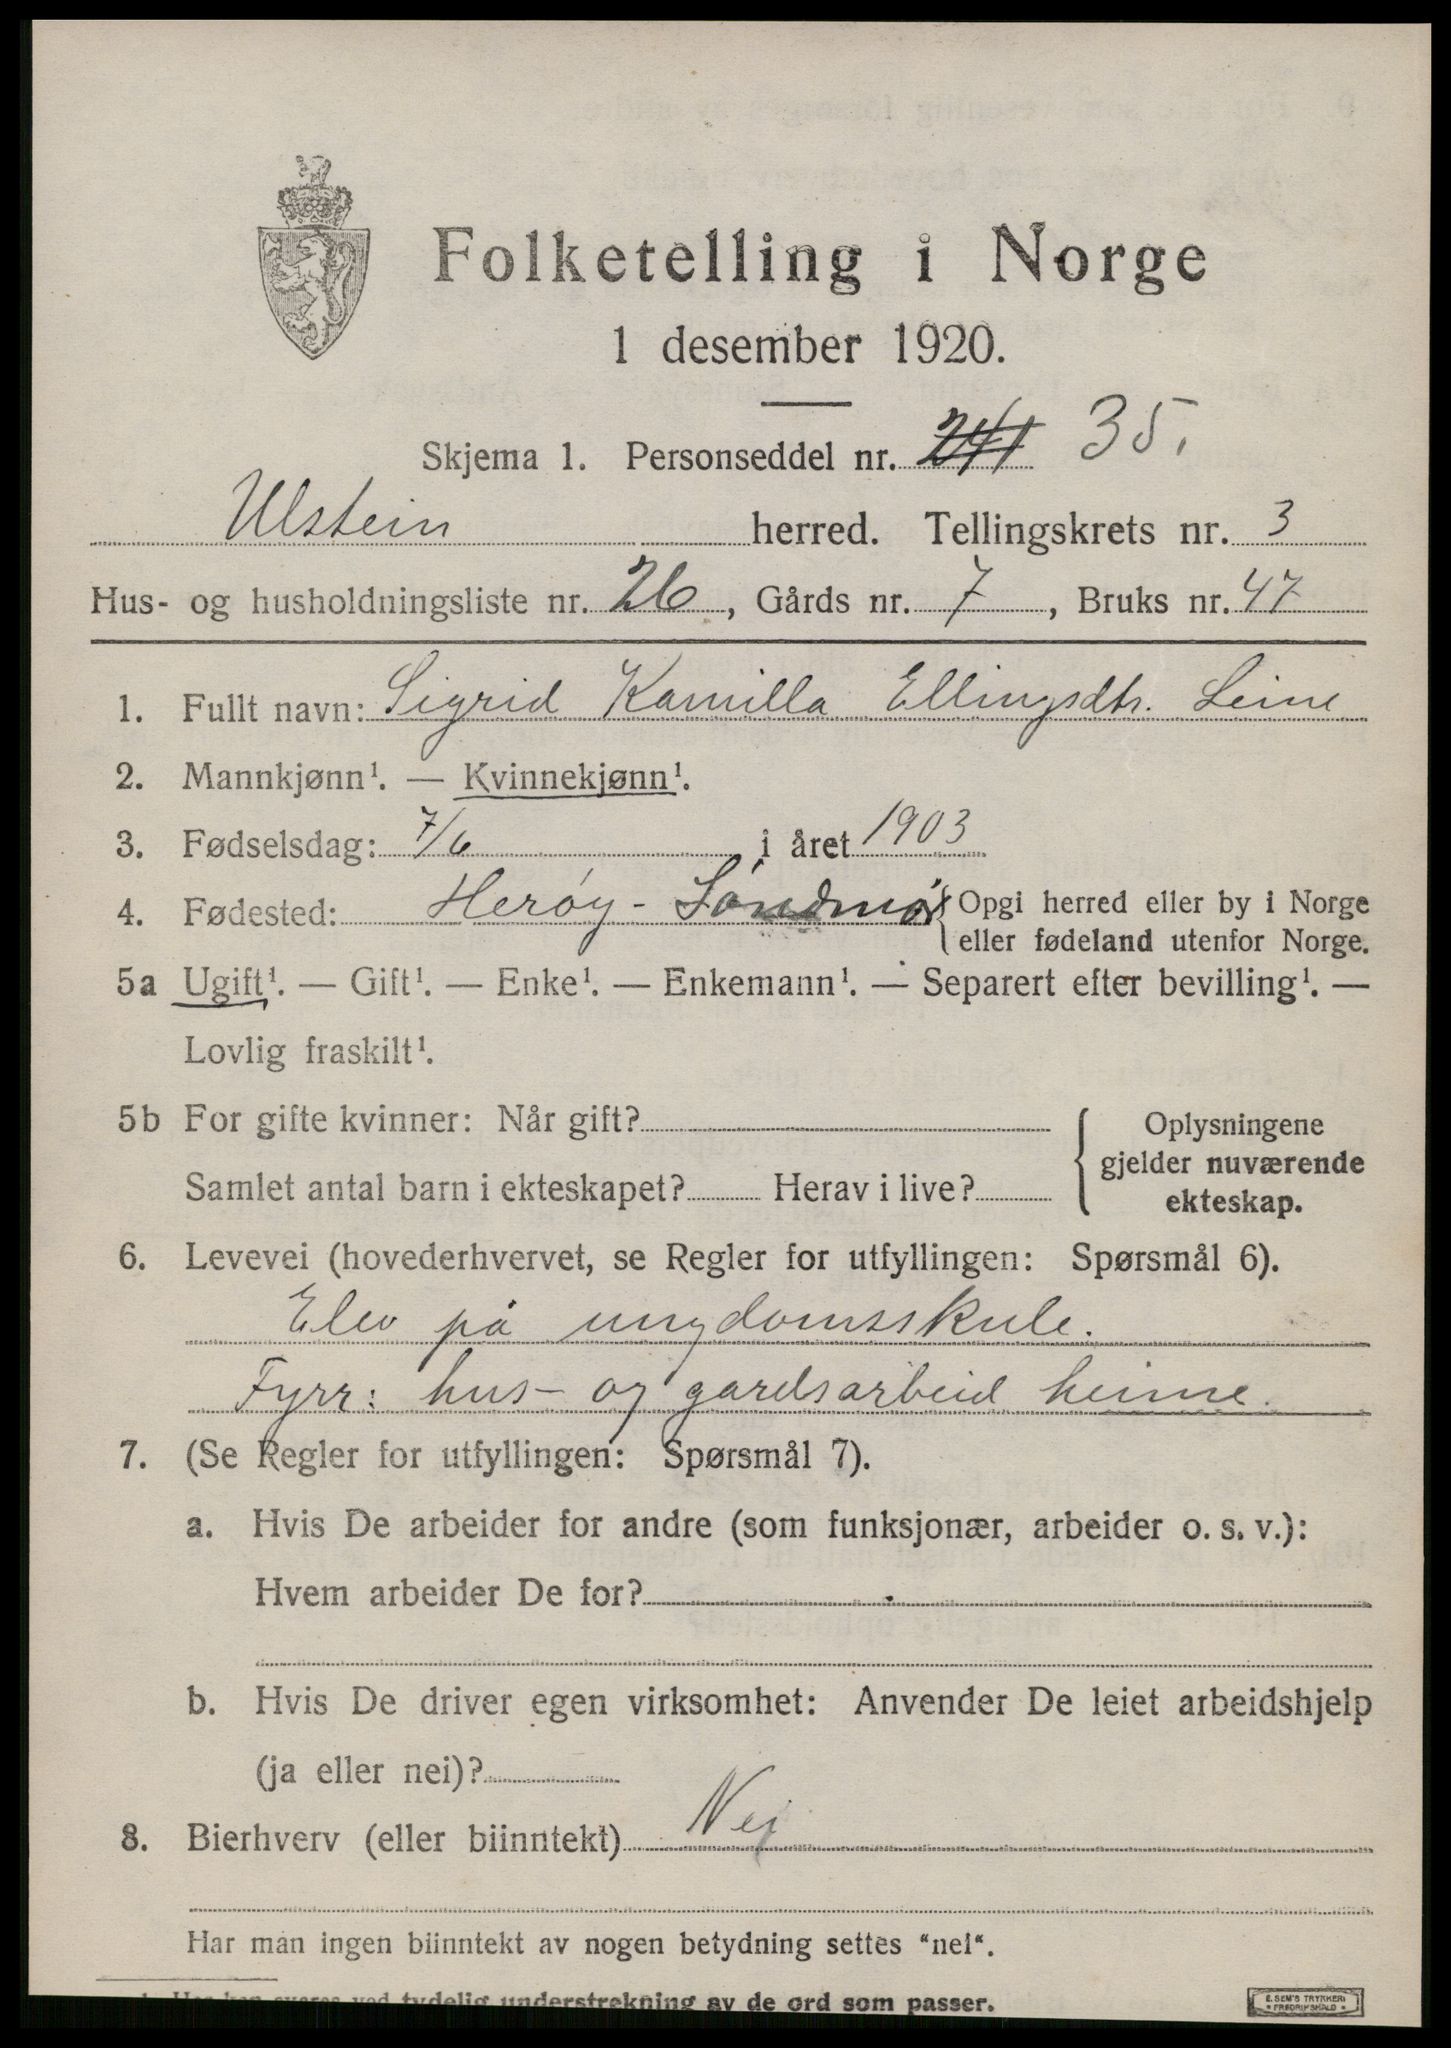 Folketelling i Norge
1 desember 1920.
Skjema 1. Personseddel nr. 241 35.
Ulstein herred. Tellingskrets nr. 3
Hus- og husholdningsliste nr. 26, Gårds nr. 7, Bruks nr. 47
1. Fullt navn: Sigrid Kamilla Ellingsdtr. Leine
2. Mannkjønn¹. — Kvinnekjønn¹.
3. Fødselsdag: 7/6 i året 1903
4. Fødested: Herøy - Söndmör { Opgi herred eller by i Norge
eller fødeland utenfor Norge.
5a Ugift¹. — Gift¹. — Enke¹. — Enkemann¹. — Separert efter bevilling¹. —
Lovlig fraskilt¹.
5b For gifte kvinner: Når gift?
Samlet antal barn i ekteskapet? Herav i live?
Oplysningene
gjelder nuværende
ekteskap.
6. Levevei (hovederhvervet, se Regler for utfyllingen: Spørsmål 6).
Elev på ungdomsskule.
Fyrr: hus- og gardsarbeid heime.
7. (Se Regler for utfyllingen: Spørsmål 7).
a. Hvis De arbeider for andre (som funksjonær, arbeider o. s. v.):
Hvem arbeider De for?
b. Hvis De driver egen virksomhet: Anvender De leiet arbeidshjelp
(ja eller nei)?
8. Bierhverv (eller biinntekt) Nei
Har man ingen biinntekt av nogen betydning settes "nei".
¹ Her kan svares ved tydelig understrekning av de ord som passer.
E. SEM'S TRYKKERI
FREDRIKSHALD